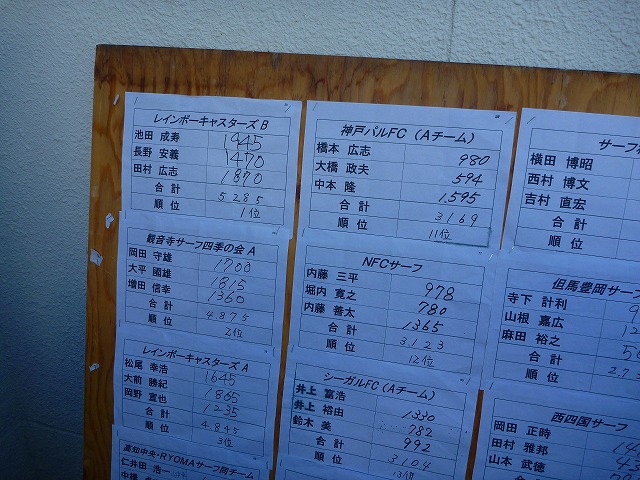 レインボーキャスターズ B
池田 成寿 1945
長野 安義 1470
田村 広志 1870
合 計 5285
順 位 1位
観音寺サーフ四季の会 A
岡田 守雄 1700
大平 國雄 1815
増田 信幸 1360
合 計 4875
順 位 2位
レインボーキャスターズ A
松尾 幸浩 1645
大前 勝紀 1865
岡野 宣也 1235
合 計 4845
順 位 3位
高知中央・RYOMAサーフ岡チーム
仁井田 浩一
神戸パルFC (Aチーム)
橋本 広志 980
大橋 政夫 594
中本 隆 1.595
合 計 3169
順 位 11位
NFCサーフ
内藤 三平 978
堀内 寛之 780
内藤 善太 1365
合 計 3123
順 位 12位
シーガルFC (Aチーム)
井上 富浩 1330
井上 裕由 782
鈴木 美 992
合 計 3104
順 位 13位
サーフ
横田 博昭
西村 博文
吉村 直宏
合 計
順 位
但馬豊岡サーフ
寺下 計利
山根 嘉広
麻田 裕之
合 計
順 位
西四国サーフ
岡田 正時
田村 雅邦
山本 武徳